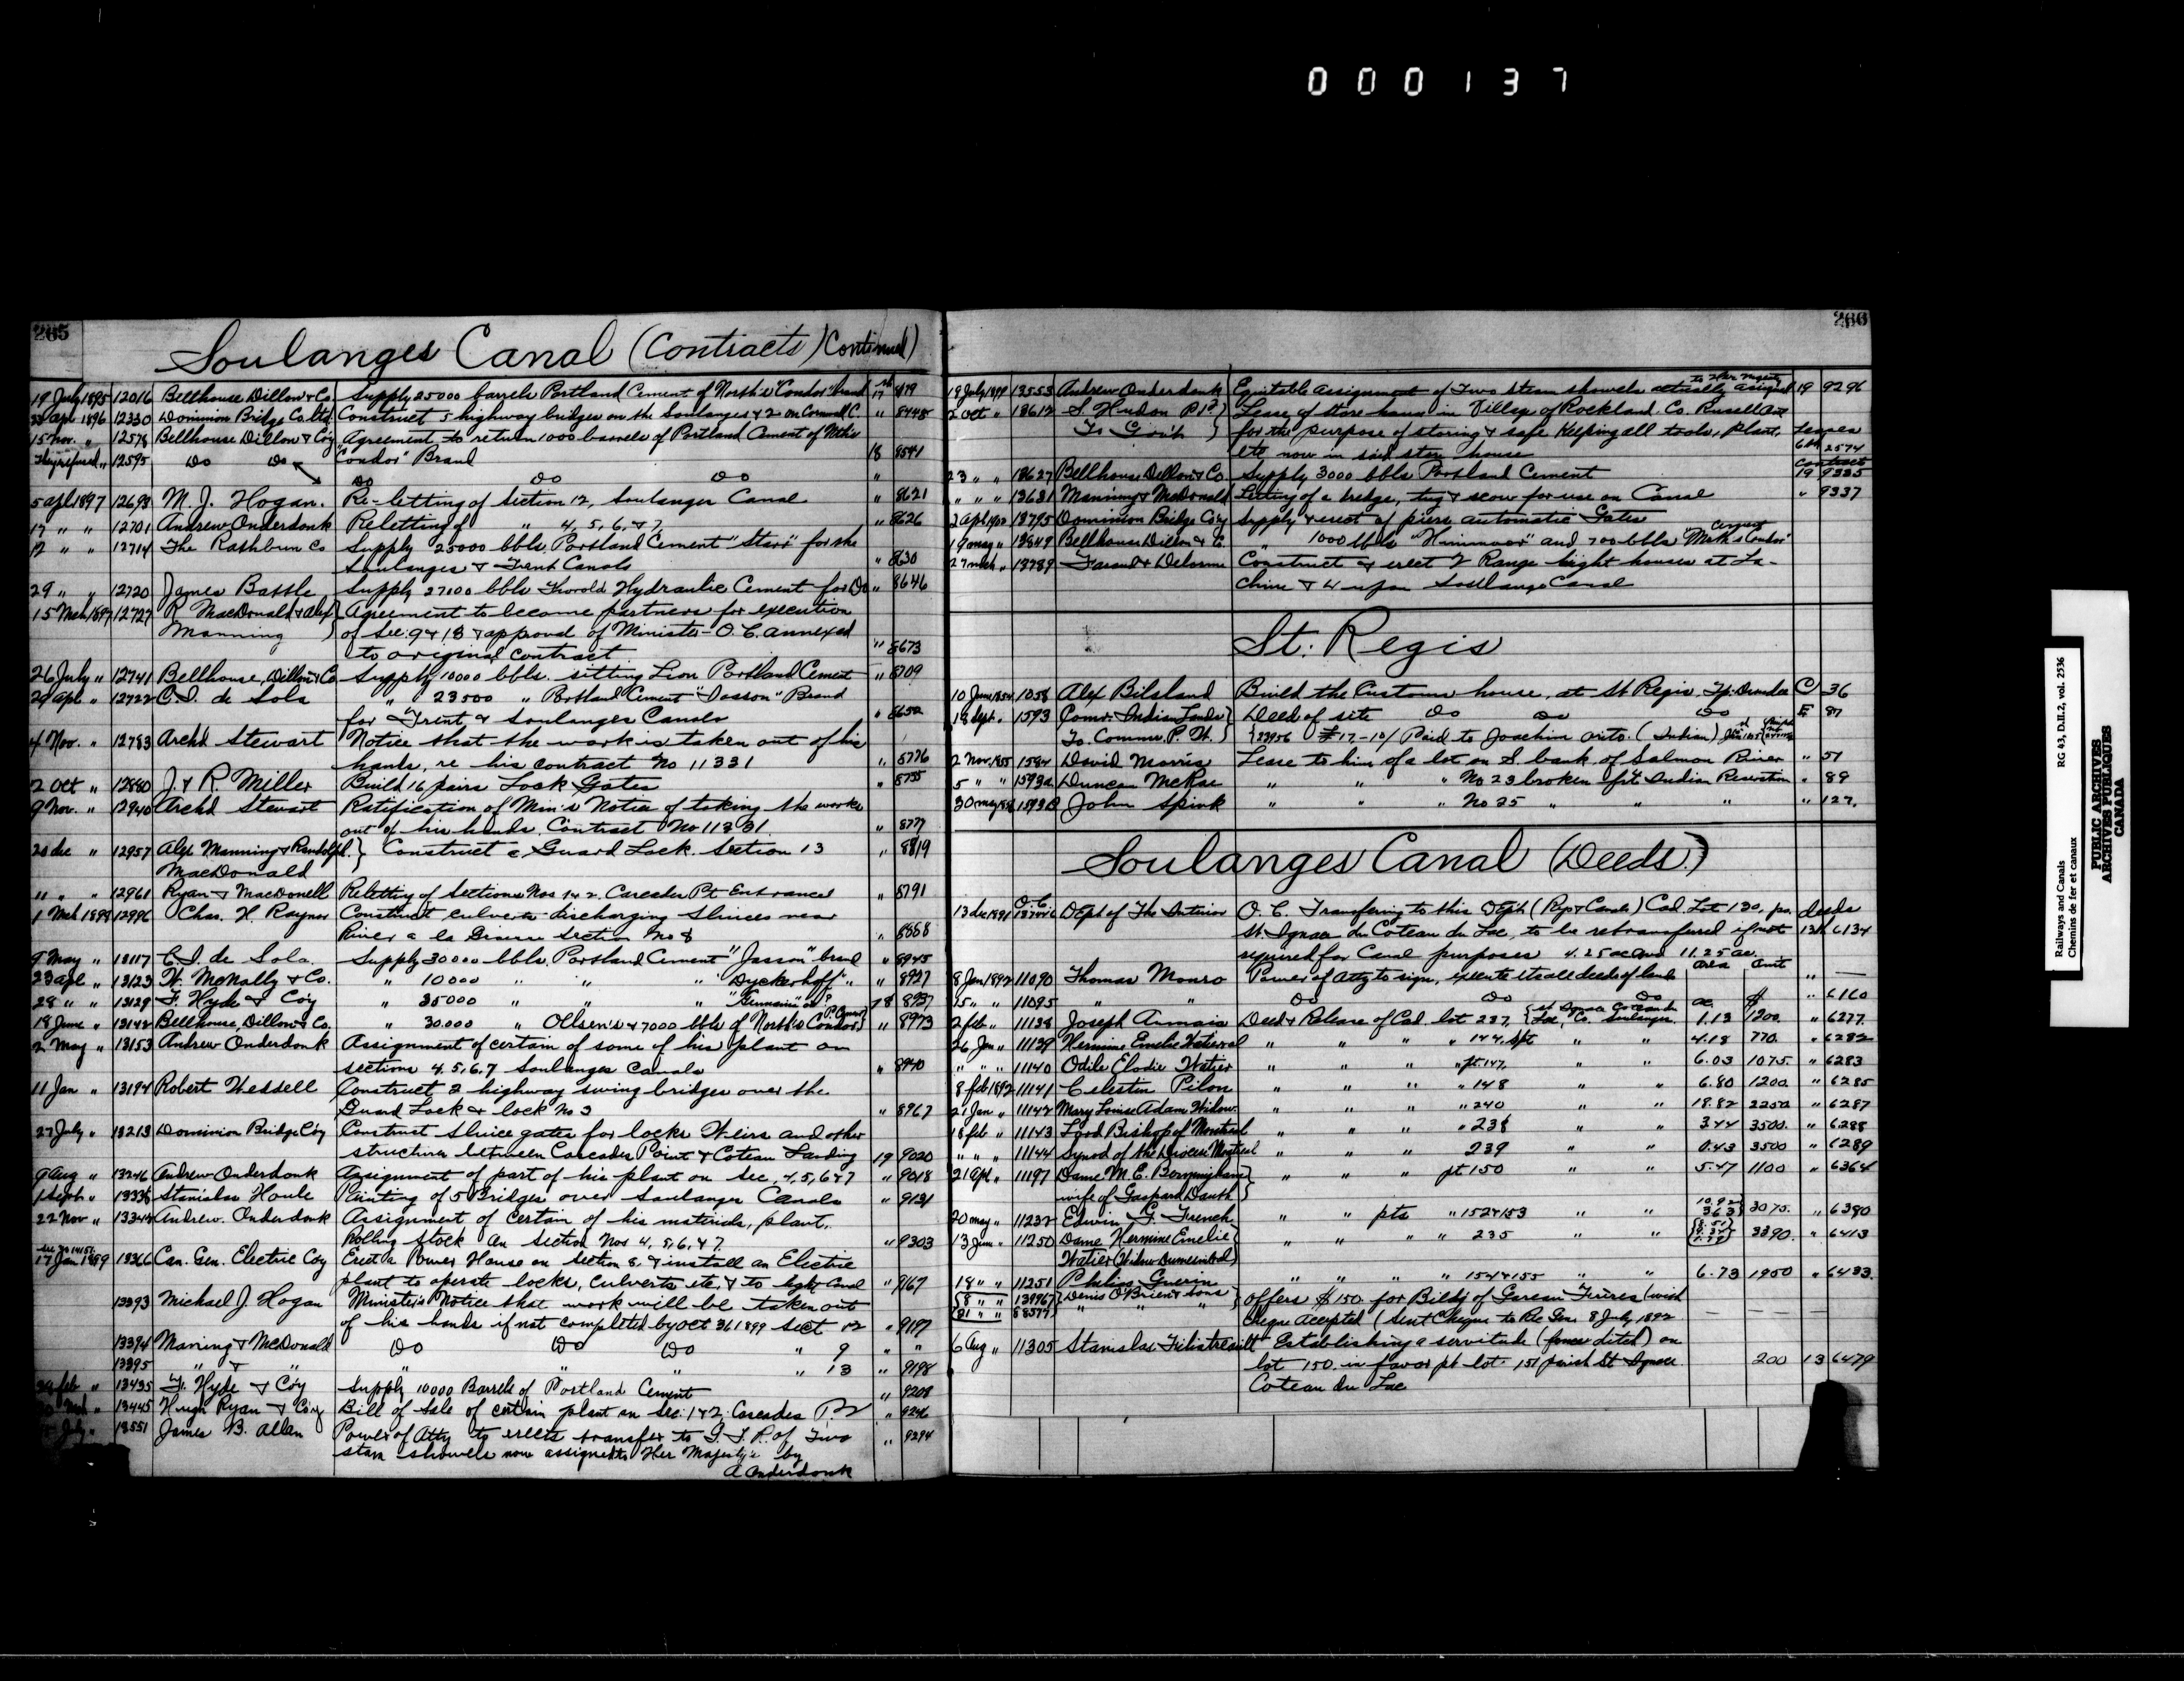 000137
265
Soulanges Canal (Contracts) Continued)
19 July 1895 12016 Bellhouse Dillon & Co. Supply 25000 barrels Portland Cement of North's "Condor" brand 17 8119
apl 1896 12330 Dominion Bridge Co. Ltd. Construct 5 highway bridges on the Soulanges & 2 on Cornwall C. " 8448
15 Nov. " 12578 Bellhouse Dillon & Coy Agreement to return 1000 barrels of Portland Cement of
They refused " 12595 Do Do "Condor" Brand 18 8541
Do Do Do "
5 apl 1897 12693 M. J. Hogan. Re-letting of Section 12, Soulanges Canal " 8621
17 " " 12701 Andrew Onderdonk Reletting of " 4, 5, 6, & 7 " 8626
12 " " 12714 The Rathbun Co Supply 25000 bbls. Portland Cement "Star" for the
Soulanges & Trent Canals " 8630
29 " " 12720 James Battle Supply 27000 bbls Thorold Hydraulic Cement for Do " 8646
15 Mch 1897 12727 R MacDonald & Alex Agreement to become partners for execution
Manning of Sec. 9 & 13 & approval of Minister - O.C. annexed
to original contract " 8673
26 July " 12741 Bellhouse, Dillon & Co Supply 10000 bbls. sitting Lion Portland Cement " 8709
29 apl " 12722 C. I. de Sola " 23500 " Portland Cement "Josson" Brand
for Trent & Soulanges Canals " 8652
4 Nov. " 12783 Archd Stewart Notice that the work is taken out of his
hands, re his contract No 11331 " 8776
2 Oct " 12880 J. & R. Miller Build 16 pairs Lock Gates " 8755
9 Nov. " 12940 Archd Stewart Ratification of Min's Notice of taking the works
out of his hands. Contract No 11331 " 8777
20 dec " 12957 Alex Manning & Randolph } Construct a Guard Lock. Section 13 " 8819
MacDonald
11 " " 12961 Ryan & MacDonell Reletting of Sections Nos 1 & 2. Cascades Pt Entrance " 8791
1 Mch 1898 12996 Chas. H. Raynor Construct culverts discharging Sluices near
River a la Graisse section No 8 " 8868
9 May " 13117 C. I. de Sola. Supply 30000 bbls. Portland Cement "Josson" brand " 8945
23 apl " 13123 W. McNally & Co. " 10000 " " " "Dyckerhoff" " " 8927
28 " " 13129 F. Hyde & Coy " 35000 " " " "Germania" 18 8937
18 June " 13142 Bellhouse, Dillon & Co. " 30.000 " Ollsen's & 7000 bbls of North's Condor " 8973
2 May " 13153 Andrew Onderdonk Assignment of certain of some of his plant on
sections 4, 5, 6, 7 Soulanges Canals " 8940
11 Jan " 13194 Robert Wessell Construct 2 highway swing bridges over the
Guard Lock & lock No 3 " 8967
27 July " 13213 Dominion Bridge Coy Construct Sluice gates for locks Weirs and other
structures between Cascades Point & Coteau Landing 19 9020
9 Aug " 13246 Andrew Onderdonk Assignment of part of his plant on Sec. 4, 5, 6 & 7 " 9018
1 Sept " 13336 Stanislas Houle Painting of 5 Bridges over Soulanges Canals " 9131
22 Nov " 13344 Andrew. Onderdonk Assignment of certain of his materials, plant,
Rolling stock on section Nos 4, 5, 6, & 7 " 9303
17 Jan 1899 13366 Can. Gen. Electric Coy Erect a Power House on section 8, & install an Electric
plant to operate locks, culverts etc, & to light Canal " 9167
13393 Michael J. Hogan Minister's Notice that work will be taken out
of his hands if not completed by Oct 31, 1899 Sect 12 " 9197
13394 Manning & McDonald Do Do Do " 9 " "
13395 " & " " " " " 13 " 9198
feb " 13435 F. Hyde & Coy Supply 10000 Barrels of Portland Cement " 9208
Mch " 13445 Hugh Ryan & Coy Bill of Sale of certain plant on Sec. 1 & 2 Cascades Pt " 9246
July " 13551 James B. Allan Power of Atty to transfer to G. T. R. of Two
steam shovels now assigned to Her Majesty by " 9294
A Onderdonk
266
18 July 1899 13553 Andrew Onderdonk Equitable assignment of Two steam shovels actually assigned to Her Majesty 19 9296
2 Oct " 13612 S. Hudon Lease of store house in Village of Rockland. Co. Russell
To Gov't for the purpose of storing & safe keeping all tools, plant, Leases
etc, now in said store house 6th 2574
Contract
23 " " 13627 Bellhouse Dillon & Co. Supply 3000 bbls Portland Cement 19 9335
" " " 13631 Manning & McDonald Letting of a dredge, tug & scow for use on Canal " 9337
2 apl 1900 13795 Dominion Bridge Coy Supply & erect 2 piers automatic Gates
19 may " 13849 Bellhouse Dillon & C. " 1000 bbls " " and 700 bbls "Condor" Cement
27 mch " 13789 Farand & Delorme Construct & erect 2 Range light houses at La-
chine & 4 upon Soulanges Canal
St. Regis
10 June 1854 1058 Alex Bilsland Build the Customs house, at St Regis. Tp. Dundee C 36
18 Sept. " 1593 Comr. Indian Lands Deed of site Do Do Do E 87
To. Commr. P. W. 23956 £17-10/ Paid to Joachim (Indian)
2 Nov. 1855 1584 David Morris Lease to him of a lot on S. bank of Salmon River " 51
5 " " 1593a Duncan McRae " " " No 23 broken frt Indian Reservation " 89
30 may 1593B John Spink " " " No 25 " " " " 127.
Soulanges Canal (Deeds.)
13 dec 1891 O.C. Dept of The Interior O. C. Transfering to this Dept (Rys & Canals) Cad. Lot 130, pa. deeds
St. Ignace du Coteau du Lac, to be retransferred if not 13th 6134
required for Canal purposes 4.25 ac and 11.25 ac.
area amt
8 Jan 1892 11090 Thomas Monro Power of Atty to sign, execute etc all deeds of land " —
15 " " 11095 " " Do Do Do ac. $ " 6160
2 feb " 11138 Joseph Deed & Release of Cad. lot 237, {St. Ignace Coteau du Lac, Co. Soulanges. 1.13 1200. " 6277
26 Jan " 11139 Hermine Emelie " " " " 144, " " 4.18 770. " 6282
" " " 11140 Odile Elodie Watier " " " " pt 147, " " 6.03 1075. " 6283
8 feb 1892 11141 Celestin Pilon " " " " 148 " " 6.80 1200. " 6285
21 Jan " 11142 Mary Louise Adam Widow. " " " " 240 " " 18.82 2252 " 6287
18 feb " 11143 Lord Bishop of Montreal " " " " 238 " " 344 3500. " 6288
" " " 11144 Synod of the Diocese Montreal " " " 239 " " 0.43 3500 " 6289
21 apl. " 11197 Dame M. E. " " " pt 150 " " 5.47 1100 " 6364
wife of Gaspard Dauth
20 may " 11232 Edwin G. French " " pts " 152 & 153 " " 10.92 363 3075. " 6380
13 June " 11250 Dame Hermine Emelie " " " " 235 " " 3390. " 6413
Watier
18 " " 11251 Philias Guerin " " " " 154 & 155 " " 6.73 1950 " 6433.
8 " " 139967 Denis O'Brien & Sons offers $150. for Bildg of Gareau Freres (with
21 " " 58577 " " " Cheque accepted (Sent Cheque to Rec Gen. 8 July 1892 — — — —
6 Aug " 11305 Stanislas Filiatreault Establishing a servitude (fence ditch) on
lot 150. in favor pt lot. 151 parish St Ignace. 200 13 6479
Coteau du Lac
Railways and Canals RG 43, D.II.2, vol. 2536
Chemins de fer et canaux
PUBLIC ARCHIVES
ARCHIVES PUBLIQUES
CANADA